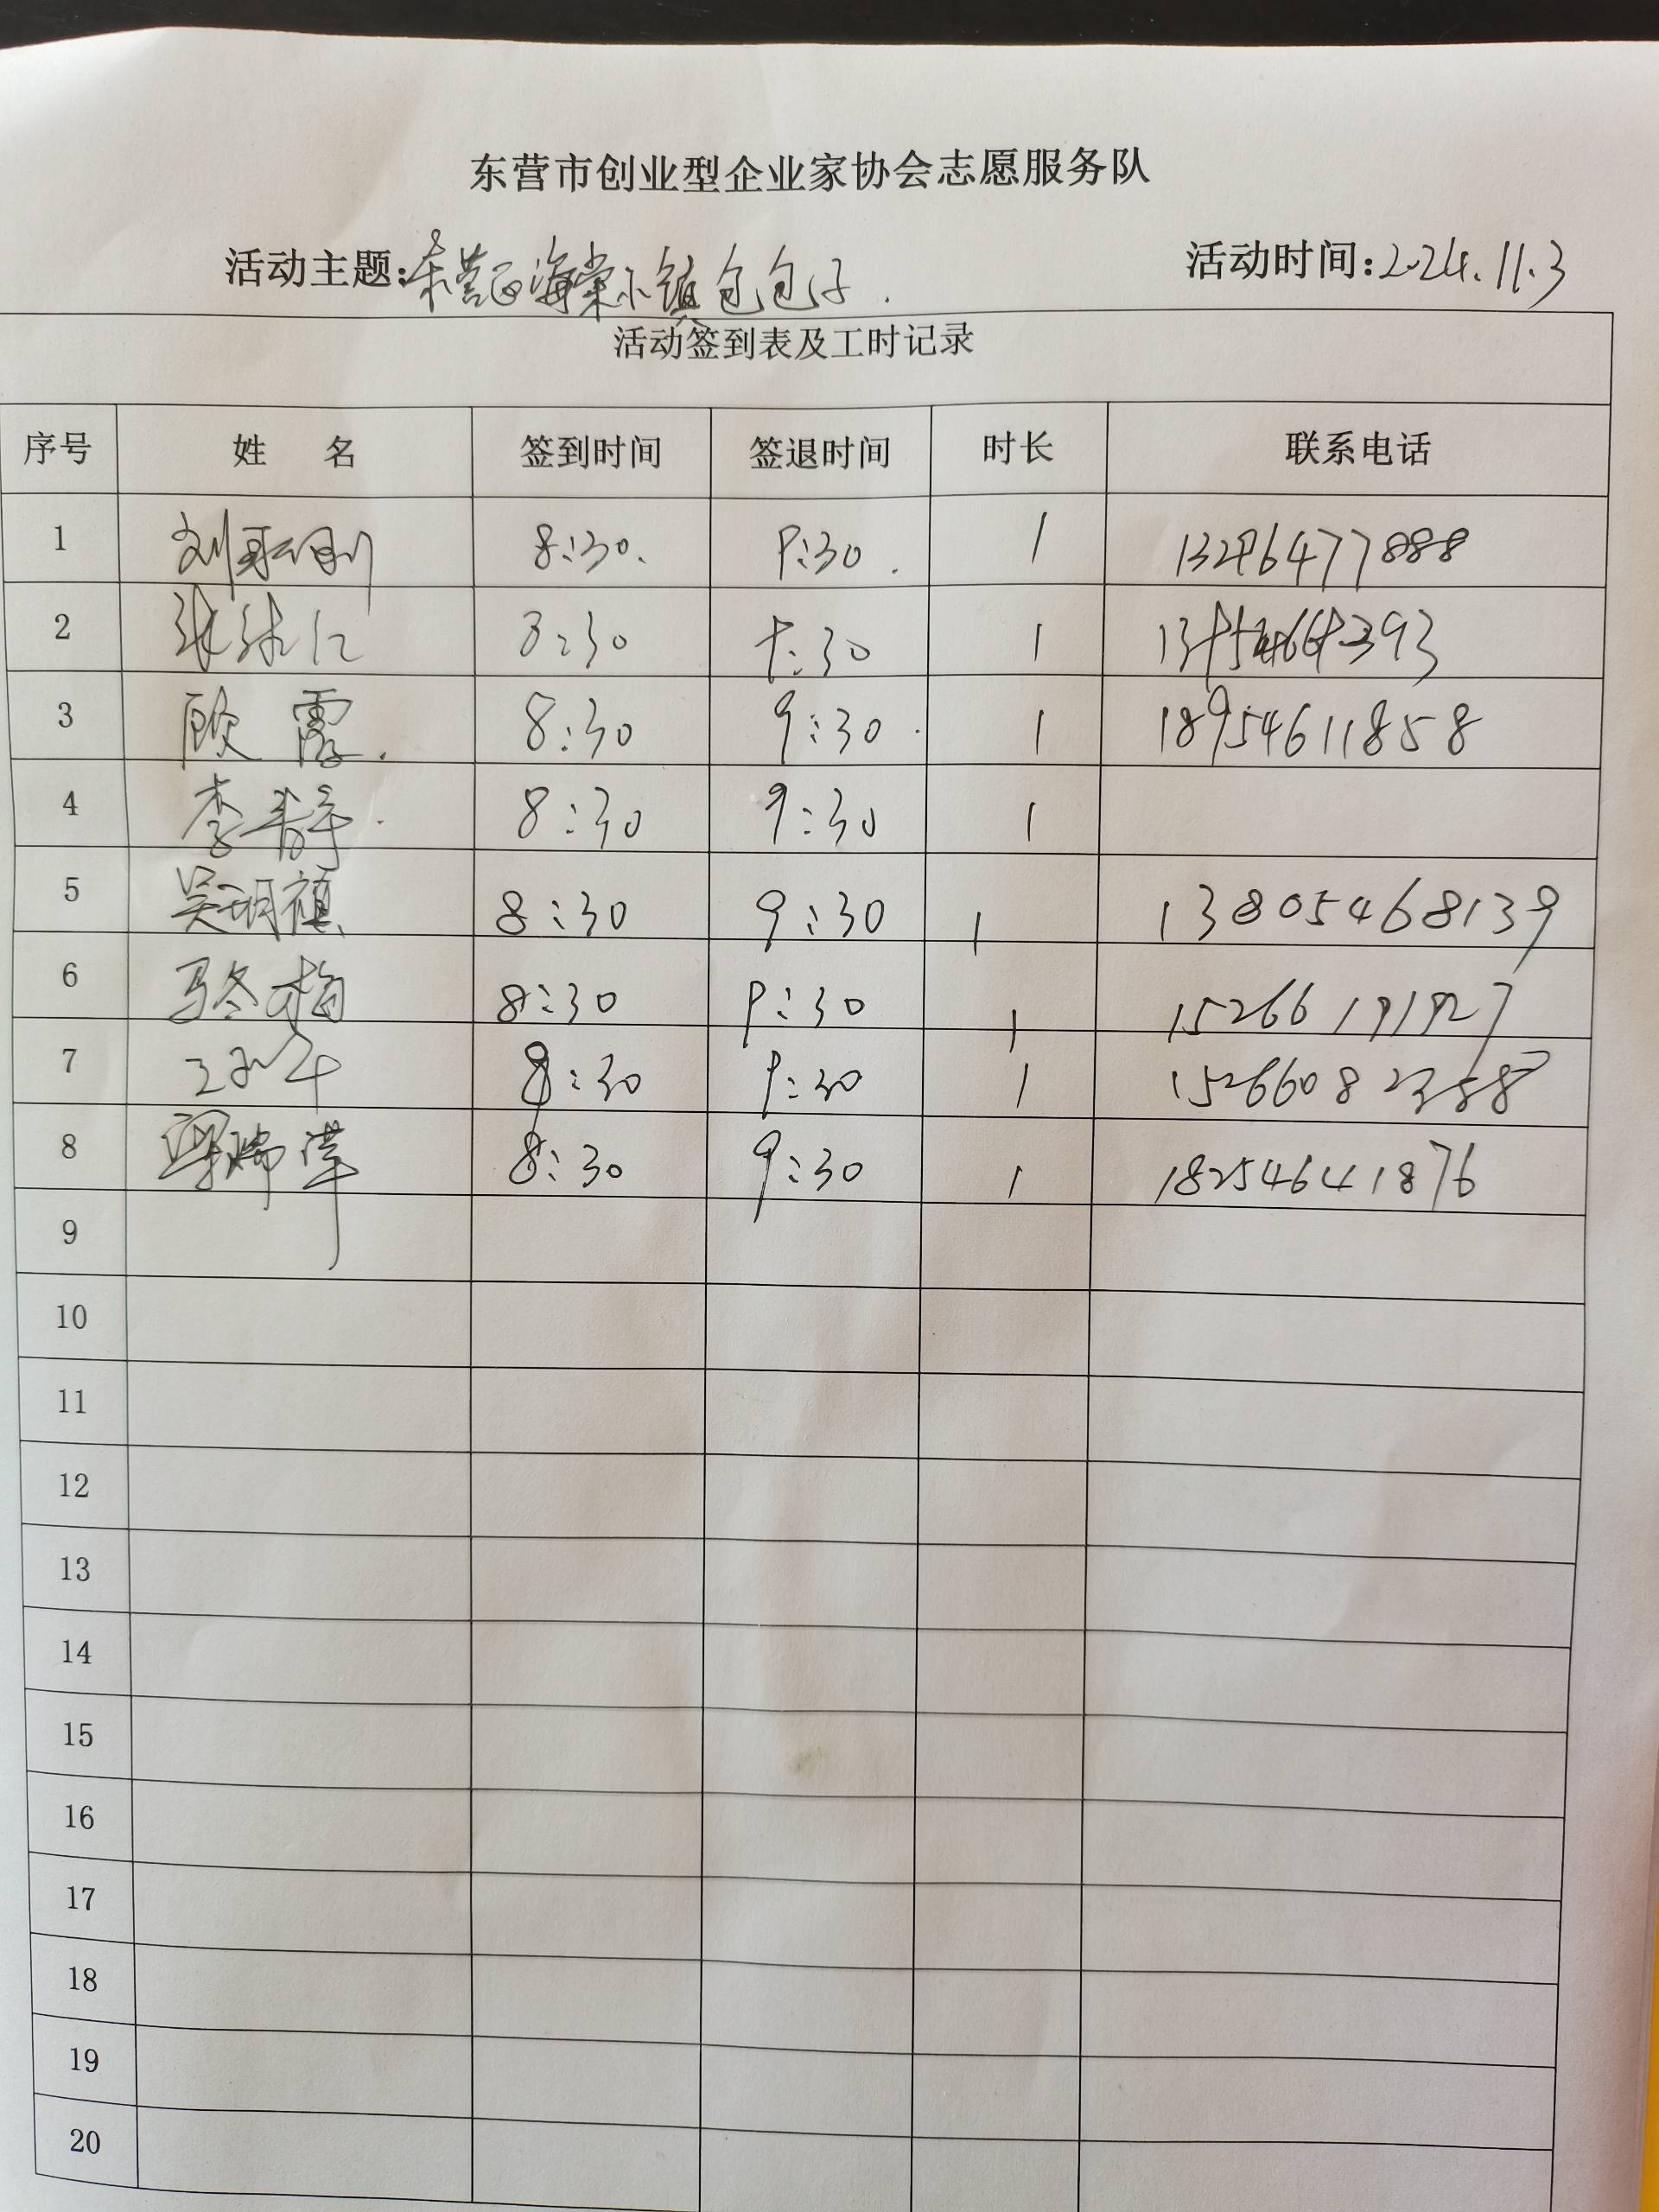 东营市创业型企业家协会志愿服务队
活动主题:东营西海棠小镇包包子. 活动时间:2024.11.3
活动签到表及工时记录
序号 姓 名 签到时间 签退时间 时长 联系电话
1 8:30. 9:30. 1
2 8:30 9:30 1
3 顾霞. 8:30 9:30. 1 18954611858
4 李静. 8:30 9:30 1
5 吴玥禛 8:30 9:30 1 13805468139
6 马冬梅 8:30 9:30 1 15266191927
7 8:30 9:30 1
8 8:30 9:30 1 18254641876
9
10
11
12
13
14
15
16
17
18
19
20